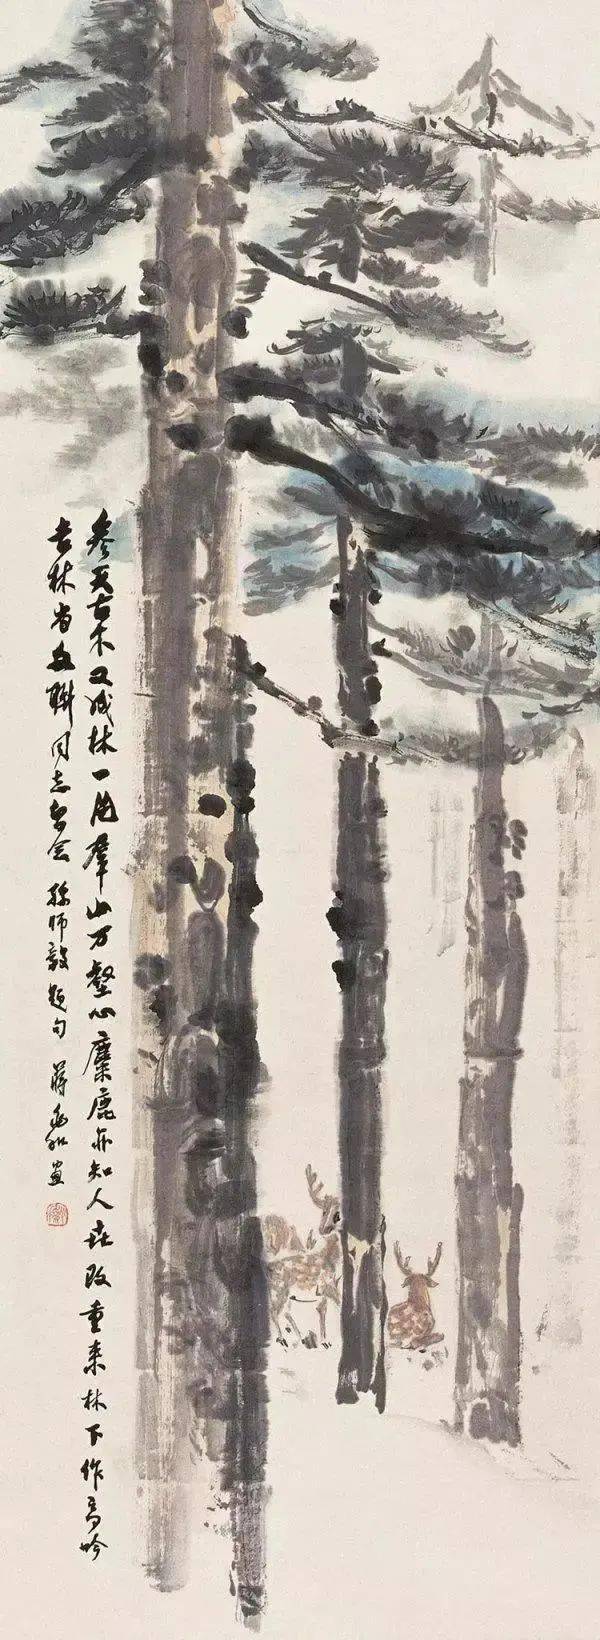 参天古木又成林一片羣山万壑心麋鹿亦知人世改重来林下作高吟
吉林省文聯同志留念 孫师毅题句 蒋兆和画